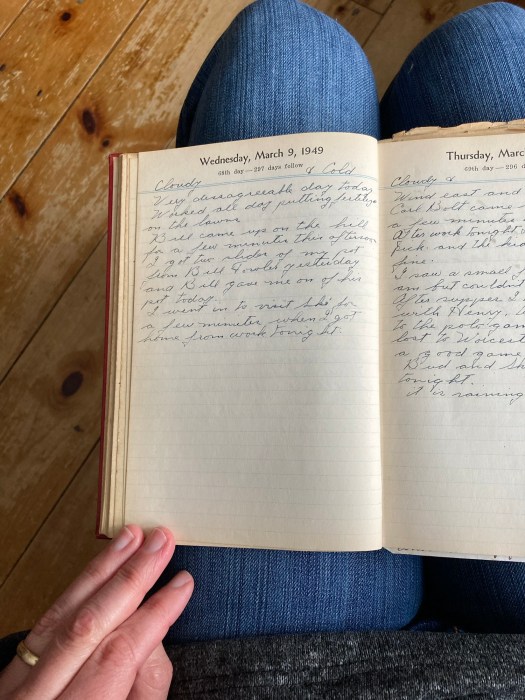 Wednesday, March 9, 1949
68th day — 297 days follow
Cloudy & Cold
Very disagreeable day today
Worked all day putting
on the lawns.
Bill came up on the hill
for a few minutes this afternoon
I got two slides of my pot
from Bill Fowler yesterday
and Bill gave me on of his
pot today.
I went in to visit for
a few minutes when I got
home from work tonight.
Thursday, Marc
69th day — 296 d
Cloudy &
Wind east and
Carl Bolt came
a few minutes
After work tonight
and the
fine.
I saw a small
am but couldn't
After supper I
with Henry.
to the polo gam
lost to Worcest
a good game
Bud and Sh
tonight.
it is raining